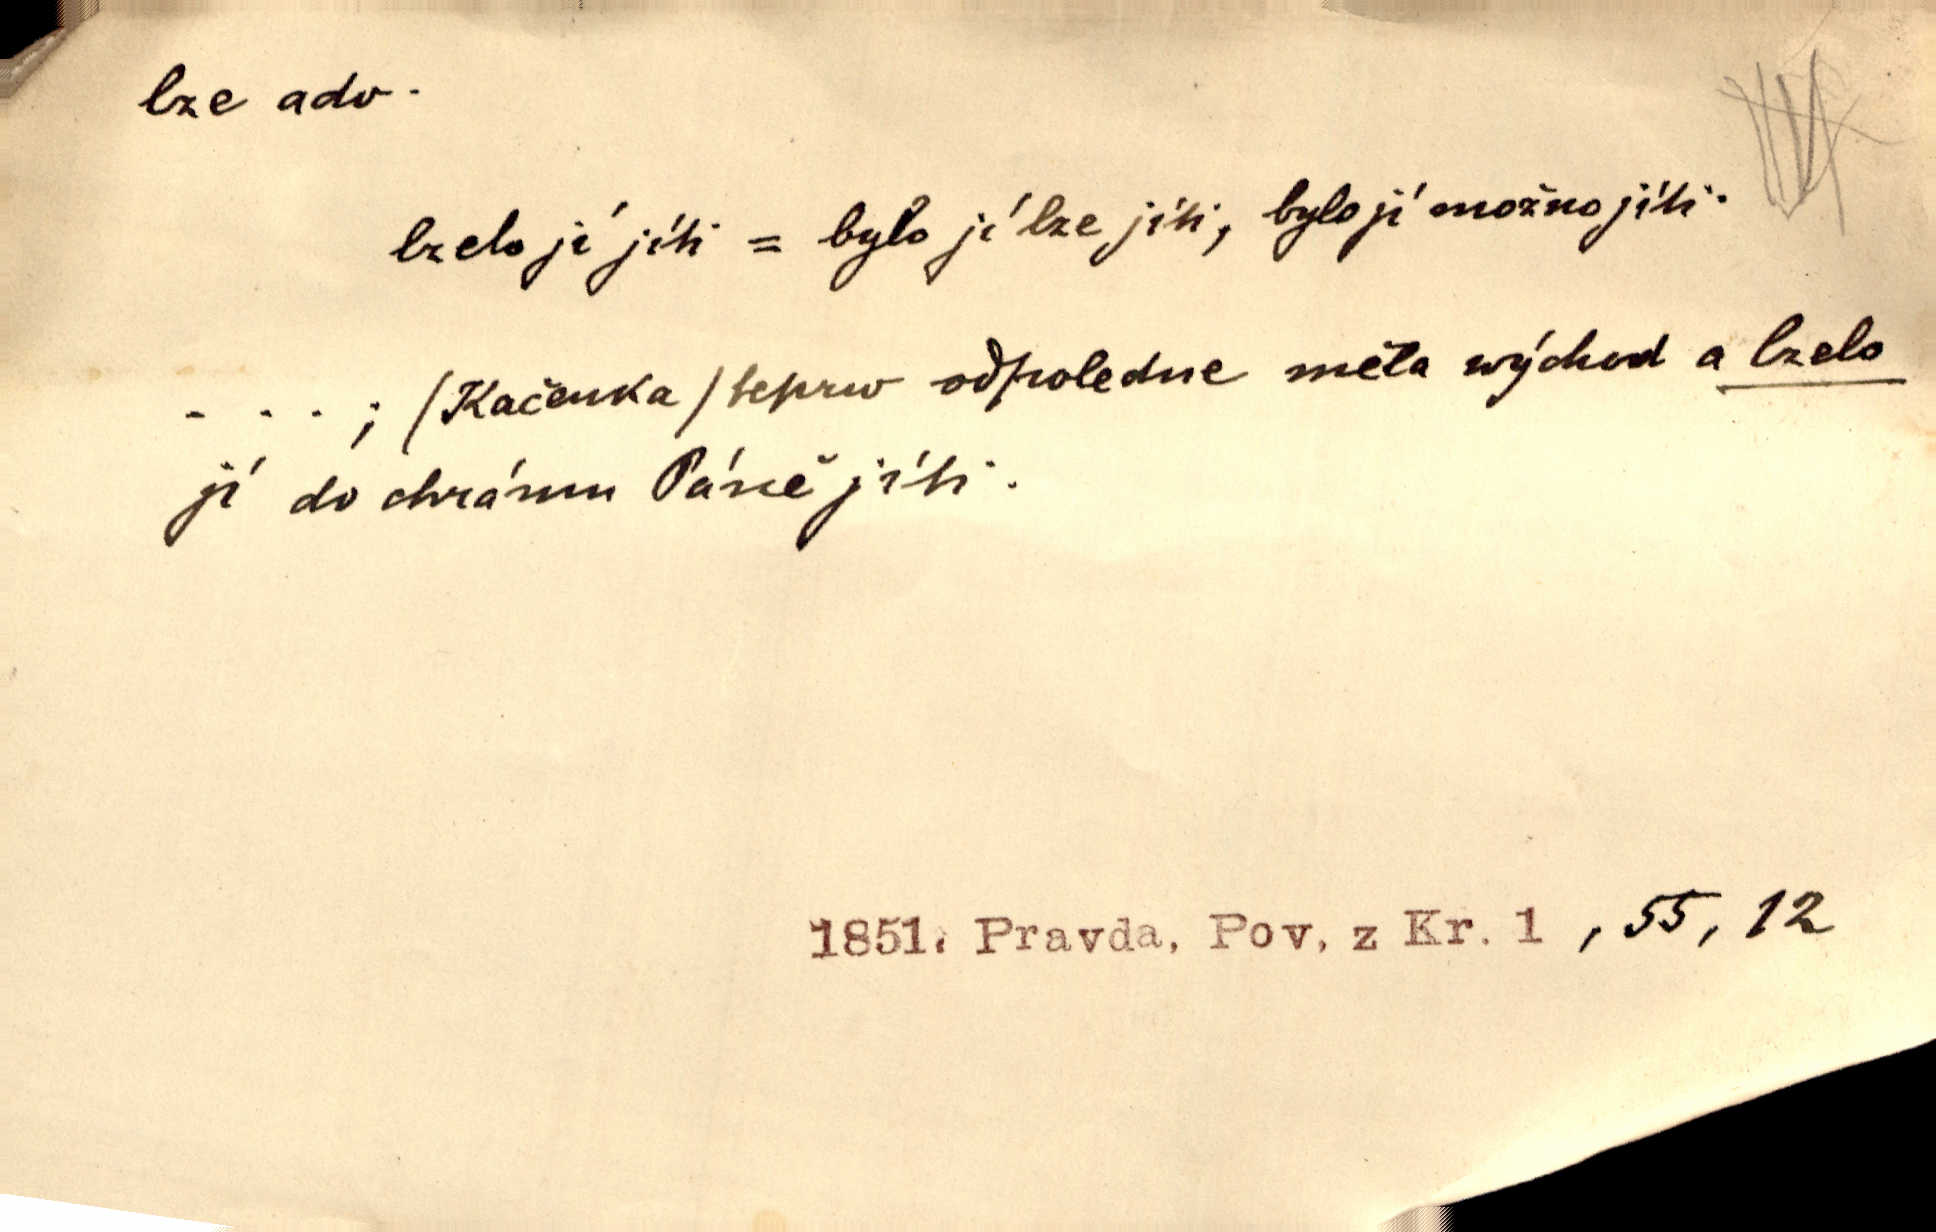 lze adv.
lzelo jí jíti = bylo jí lze jíti, bylo jí možno jíti.
. . . ; /Kačenka/ teprw odpoledne měla wýchod a lzelo
jí do chrámu Páně jíti.
1851. Pravda, Pov. z Kr. 1 , 55, 12